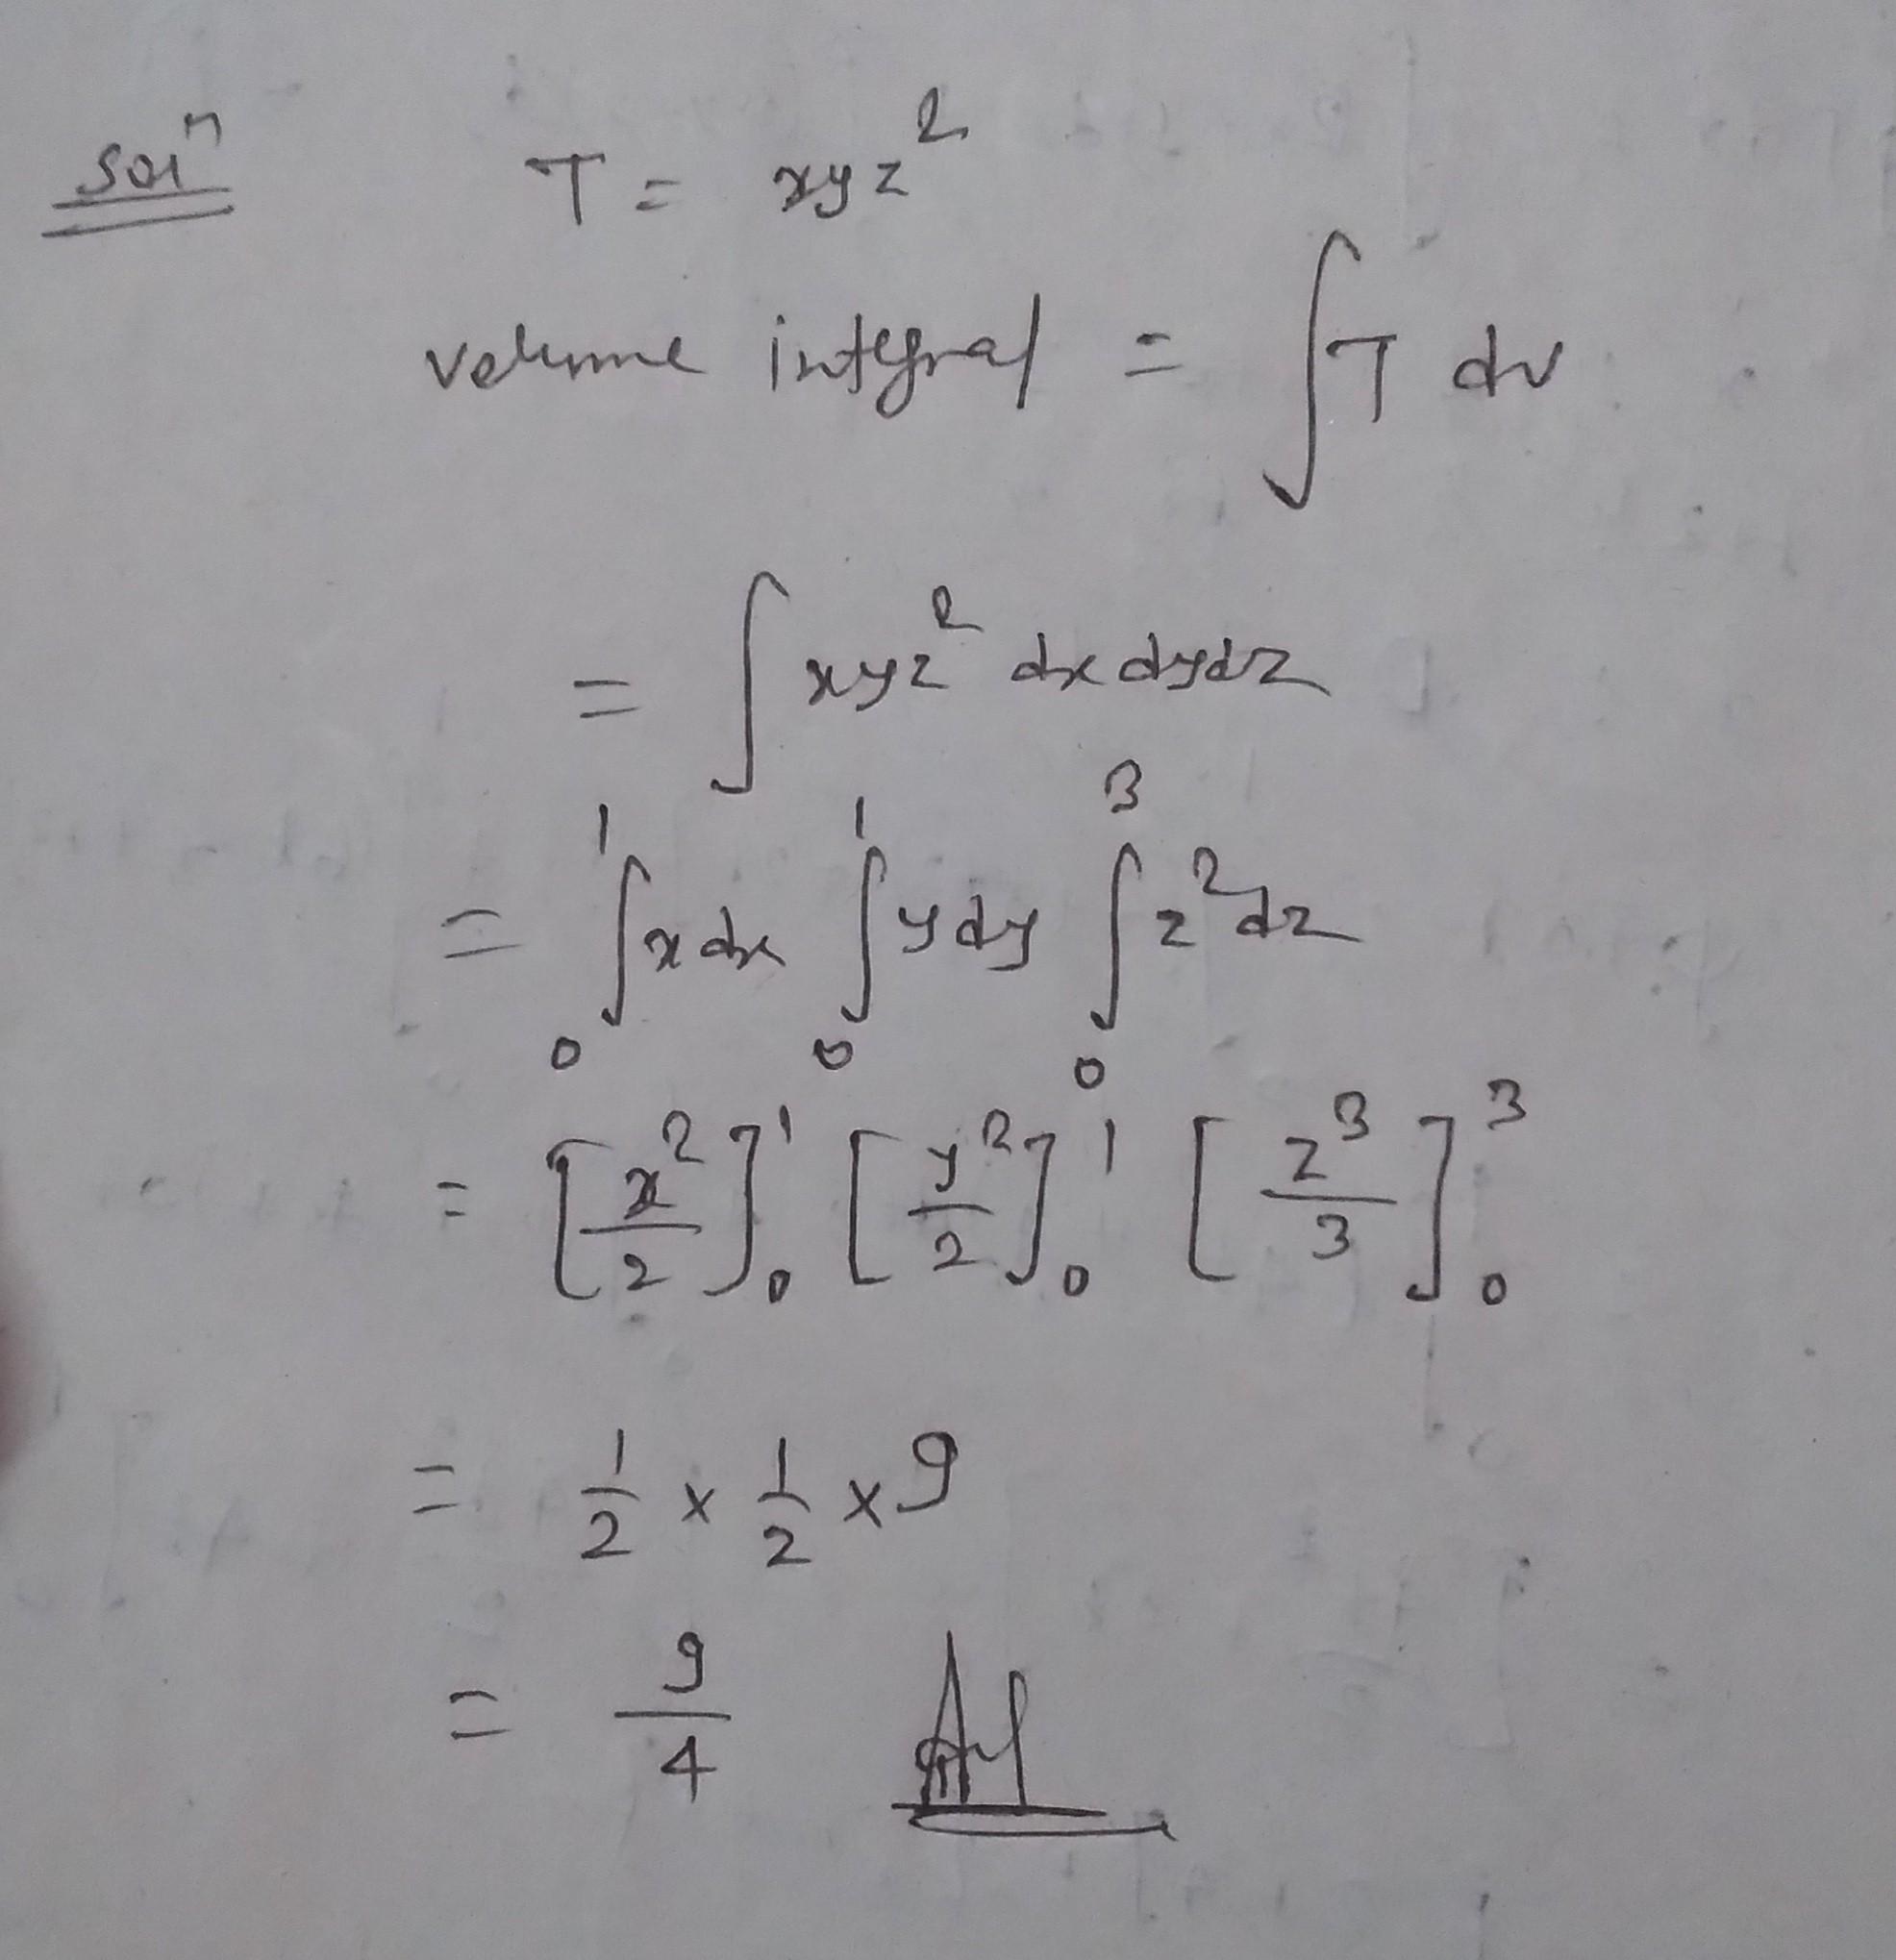 Solⁿ T = xyz²
volume integral = ∫T dv
= ∫ xyz² dx dy dz
= ₀∫¹ x dx ₀∫¹ y dy ₀∫³ z² dz
= [x²/2]₀¹ [y²/2]₀¹ [z³/3]₀³
= 1/2 × 1/2 × 9
= 9/4